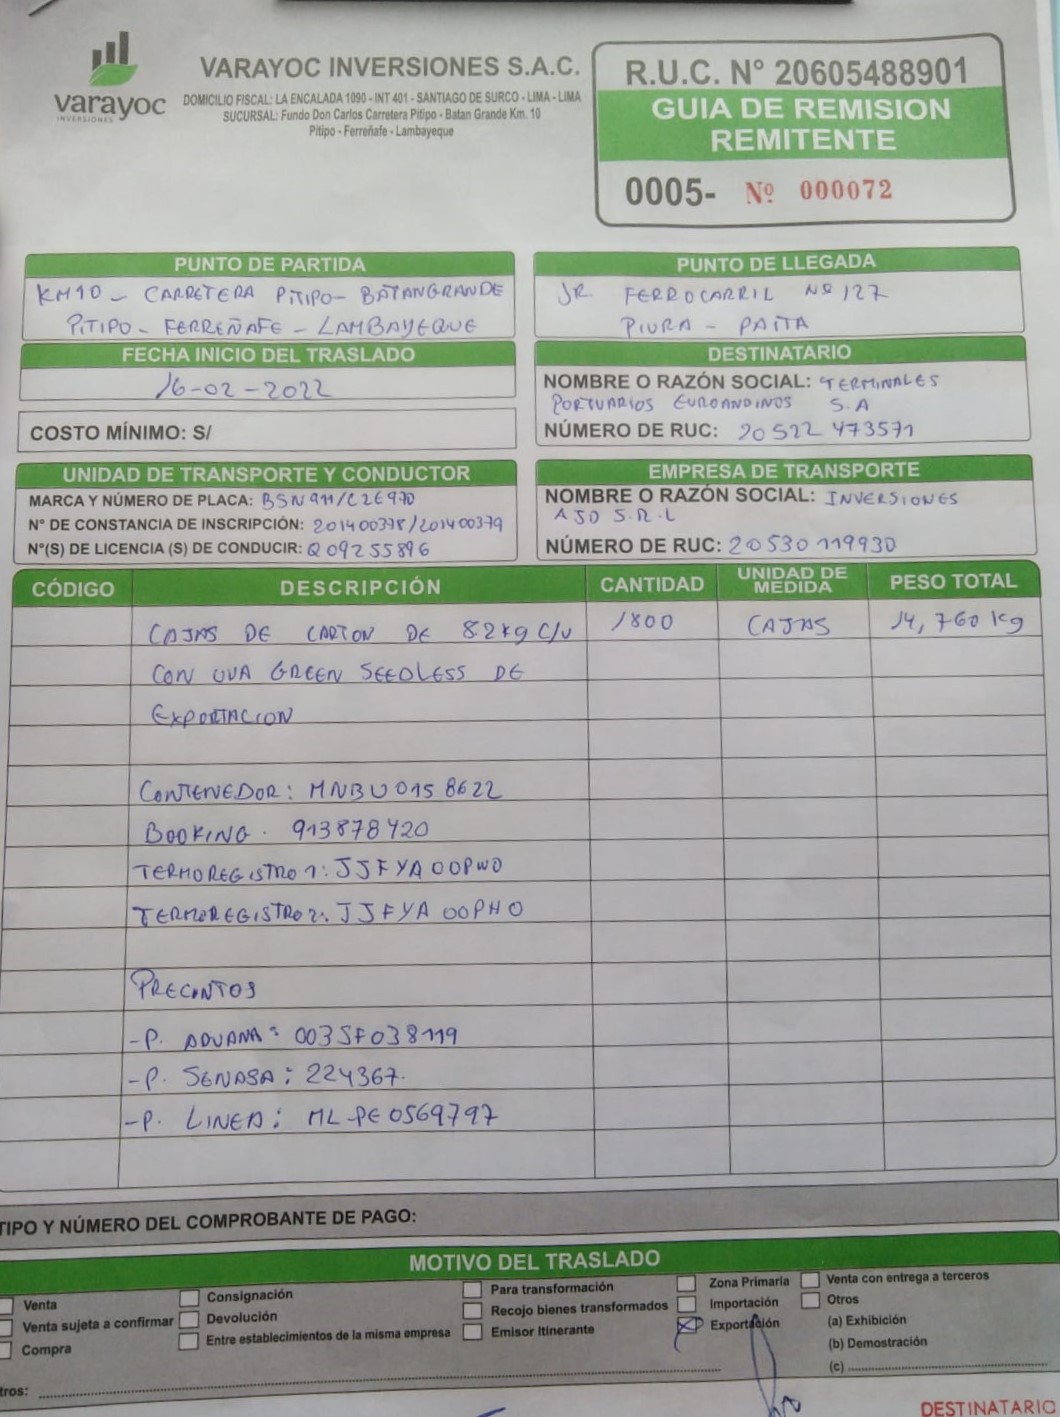 varayoc
INVERSIONES
VARAYOC INVERSIONES S.A.C.
DOMICILIO FISCAL: LA ENCALADA 1090 - INT 401 - SANTIAGO DE SURCO - LIMA - LIMA
SUCURSAL: Fundo Don Carlos Carretera Pitipo - Batan Grande Km. 10
Pitipo - Ferreñafe - Lambayeque
R.U.C. N° 20605488901
GUIA DE REMISION
REMITENTE
0005- Nº 000072
PUNTO DE PARTIDA
KM10 - CARRETERA PITIPO - BATANGRANDE
PITIPO - FERREÑAFE - LAMBAYEQUE
PUNTO DE LLEGADA
JR. FERROCARRIL Nº 127
PIURA - PAITA
FECHA INICIO DEL TRASLADO
16-02-2022
COSTO MÍNIMO: S/
DESTINATARIO
NOMBRE O RAZÓN SOCIAL: TERMINALES
PORTUARIOS EUROANDINOS S.A
NÚMERO DE RUC: 20522473571
UNIDAD DE TRANSPORTE Y CONDUCTOR
MARCA Y NÚMERO DE PLACA: BSN911/C2E970
N° DE CONSTANCIA DE INSCRIPCIÓN: 201400378/201400379
N°(S) DE LICENCIA (S) DE CONDUCIR: Q09255896
EMPRESA DE TRANSPORTE
NOMBRE O RAZÓN SOCIAL: INVERSIONES
AJD S.R.L
NÚMERO DE RUC: 20530119930
CÓDIGO DESCRIPCIÓN CANTIDAD UNIDAD DE MEDIDA PESO TOTAL
CAJAS DE CARTON DE 8.2kg C/U 1800 CAJAS 14,760 kg
CON UVA GREEN SEEDLESS DE
EXPORTACION
CONTENEDOR: MNBU0158622
BOOKING. 913878420
TERMOREGISTRO 1: JJFYA00PWO
TERMOREGISTRO 2: JJFYA00PHO
PRECINTOS
-P. ADUANA: 003SF038119
-P. SENASA: 224367.
-P. LINEA: ML-PE0569797
TIPO Y NÚMERO DEL COMPROBANTE DE PAGO:
MOTIVO DEL TRASLADO
Venta
Venta sujeta a confirmar
Compra
Consignación
Devolución
Entre establecimientos de la misma empresa
Para transformación
Recojo bienes transformados
Emisor Itinerante
Zona Primaria
Importación
Exportación
Venta con entrega a terceros
Otros
(a) Exhibición
(b) Demostración
(c)
tros:
DESTINATARIO